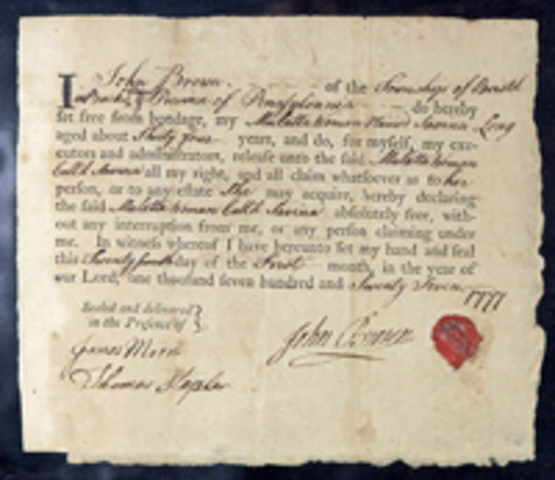 I John Brown of the Township of Bristol
in Bucks & Province of Pensylvania do hereby
set free from bondage, my Mulatto Woman Named Savina Long
aged about Thirty four years, and do, for myself, my exe-
cutors and administrators, release unto the said Mulatto Woman
Call'd Savina all my right, and all claim whatsoever as to her
person, or to any estate She may acquire, hereby declaring
the said Mulatto Woman Call'd Savina absolutely free, with-
out any interruption from me, or any person claiming under
me. In witness whereof I have hereunto set my hand and seal
this Twenty fourth day of the First month, in the year of
our Lord, one thousand seven hundred and Seventy Seven 1777
Sealed and delivered
in the Presence of
John Brown
James Moon
Thomas